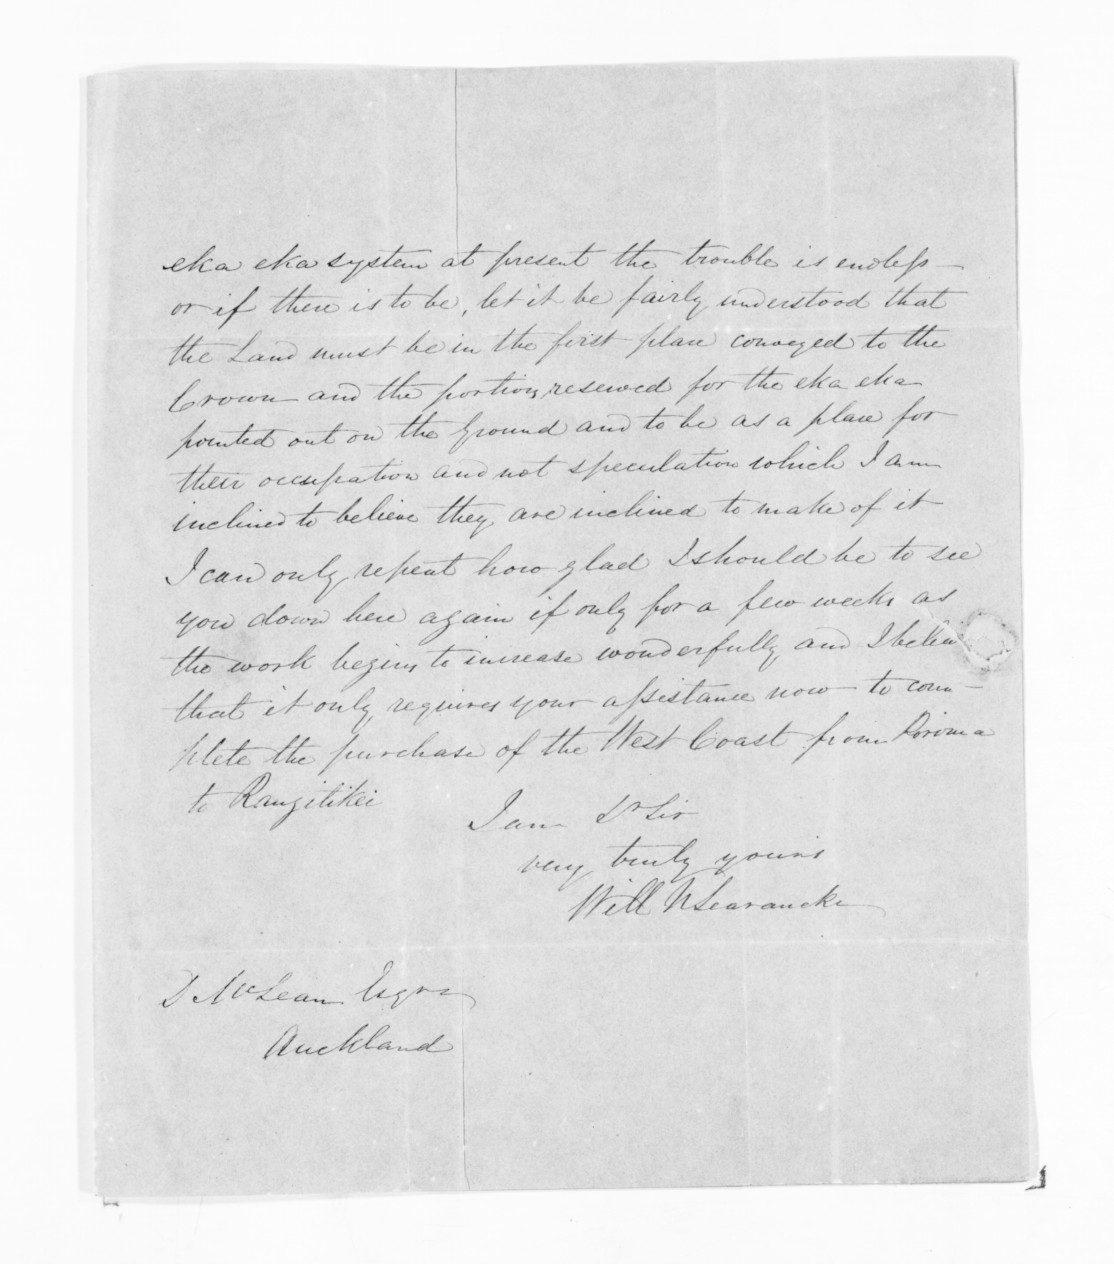 eka eka system at present the trouble is endless –
or if there is to be, let it be fairly understood that
the Land must be in the first place conveyed to the
Crown and the portion reserved for the eka eka
pointed out on the Ground and to be as a place for
their occupation and not speculation which I am
inclined to believe they are inclined to make of it
I can only repeat how glad I should be to see
you down here again if only for a few weeks as
the work begins to increase wonderfully and I believe
that it only requires your assistance now to com-
plete the purchase of the West Coast from Porirua
to Rangitikei
I am Dr Sir
very truly yours
Will N Searancke
D McLean Esqre
Auckland